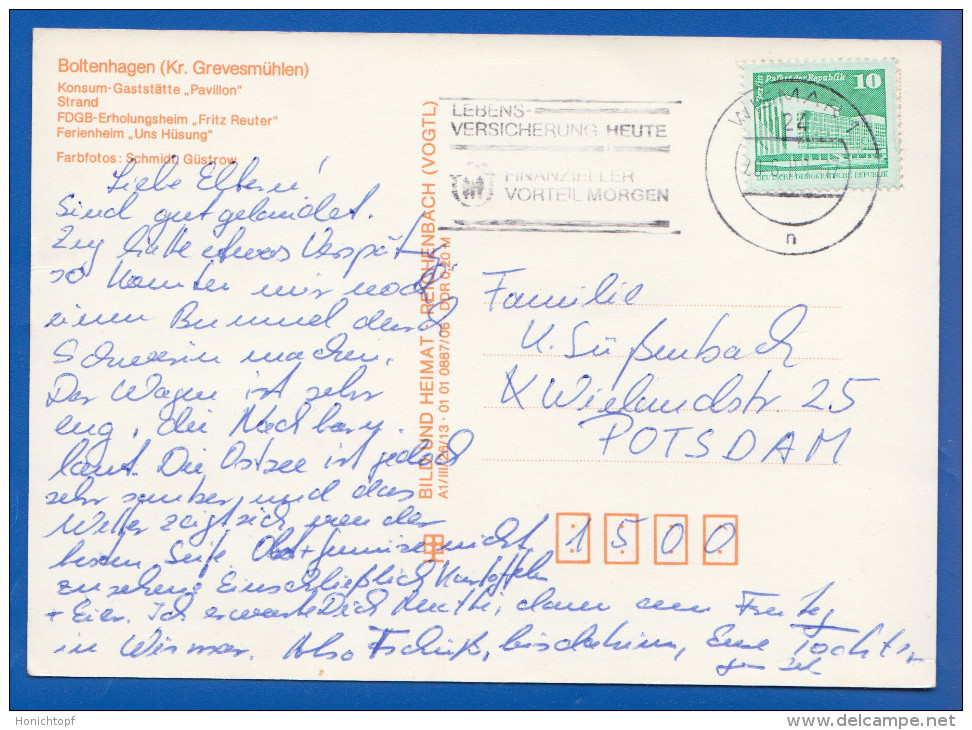 Boltenhagen (Kr. Grevesmühlen)
Konsum-Gaststätte „Pavillon"
Strand
FDGB-Erholungsheim „Fritz Reuter"
Ferienheim „Uns Hüsung"
Farbfotos: Schmidt, Güstrow
Liebe Eltern!
Sind gut gelandet.
Zug hatte etwas Verspätg.
so konnten wir noch
einen Bummel durch
Schwerin machen.
Der Wagen ist sehr
eng, die Nachbarn
laut. Die Ostsee ist jedoch
sehr sauber und das
Wetter zeigt sich von der
besten Seite. Obst + Gemüse nicht
zu sehen. Einschließlich Kartoffeln
+ Eier. Ich erwarte Dich Mutti, dann am Freitag
in Wismar. Also Tschüß, bis dahin, Eure Tochter
BILD UND HEIMAT REICHENBACH (VOGTL)
A1/III/26/13 · 01 01 0887/06 DDR 0,20 M
LEBENS-
VERSICHERUNG HEUTE
FINANZIELLER
VORTEIL MORGEN
WISMAR 1
24
n
Berlin, Palast der Republik
10
DEUTSCHE DEMOKRATISCHE REPUBLIK
Familie
K. Süßenbach
Wielandstr. 25
POTSDAM
1500
Honichtopf
www.delcampe.net